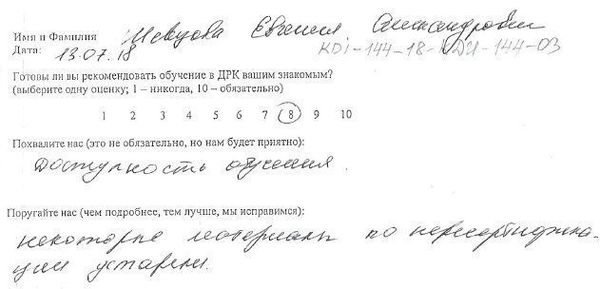 Имя и Фамилия Шевцова Евгения Александровна
Дата: 13.07.18 KDI-144-18-KDИ-144-03
Готовы ли вы рекомендовать обучение в ДРК вашим знакомым?
(выберите одну оценку; 1 – никогда, 10 – обязательно)
1 2 3 4 5 6 7 8 9 10
Похвалите нас (это не обязательно, но нам будет приятно):
Доступность обучения.
Поругайте нас (чем подробнее, тем лучше, мы исправимся):
некоторые материалы по пересертифика-
ции устарели.